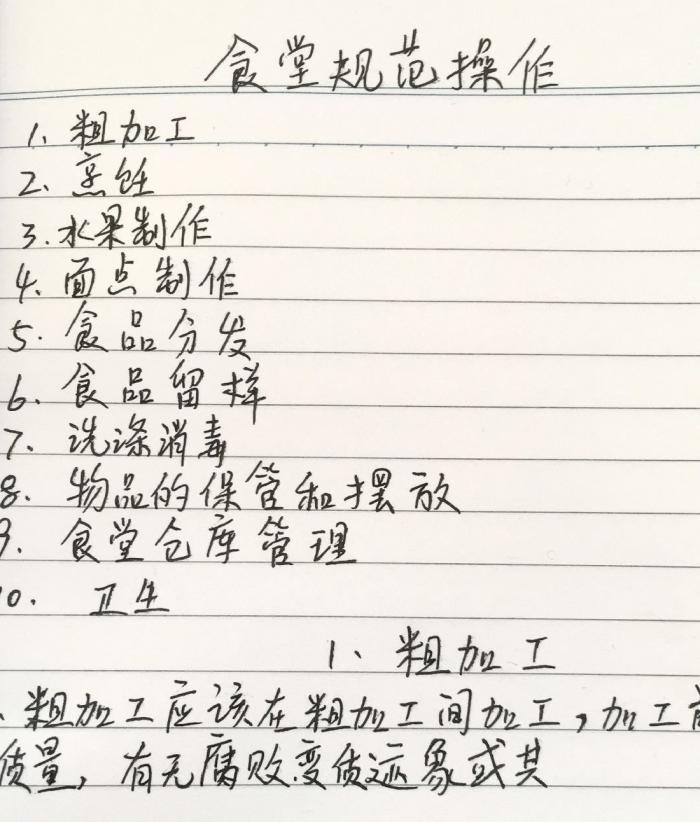 食堂规范操作
1、粗加工
2、烹饪
3.水果制作
4、面点制作
5.食品分发
6.食品留样
7、洗涤消毒
8.物品的保管和摆放
9.食堂仓库管理
10.卫生
1、粗加工
、粗加工应该在粗加工间加工,加工前
质量,有无腐败变质迹象或其